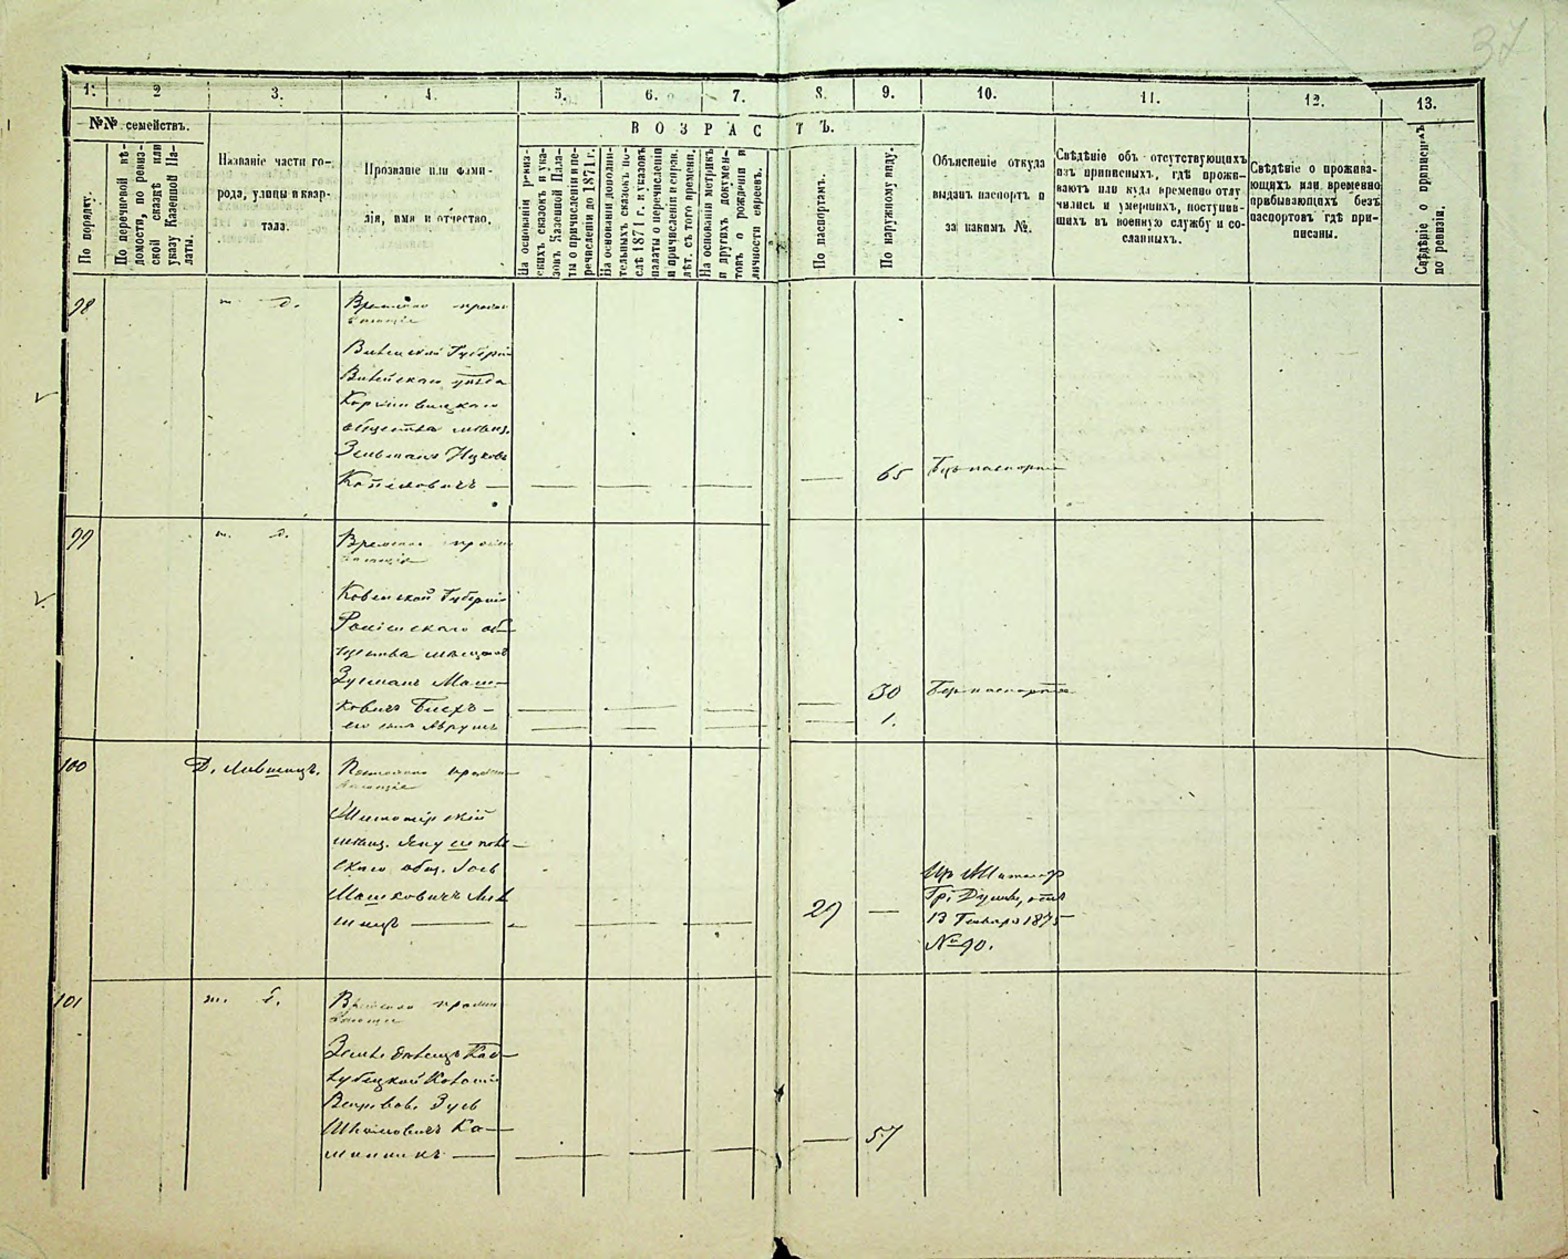 37
1. 2 3. 4. 5. 6. 7. 8. 9. 10. 11. 12. 13.
№№ семействъ.
По порядку.
По перечневой вѣ-
домости, по ревиз-
ской сказкѣ или
указу Казенной Па-
латы.
Названіе части го-
рода, улицы и квар-
тала.
Прозваніе или фами-
лія, имя и отчество.
ВОЗРАСТЪ.
На основаніи ревиз-
скихъ сказокъ и ука-
зовъ Казенной Пала-
ты о причисленіи и пе-
речисленіи до 1871 г.
На основаніи дополни-
тельныхъ сказокъ по-
слѣ 1871 г. и указовъ
палаты о перечисленіи
и причисленіи и справ.
лѣт. съ того времени.
На основаніи метрикъ
и другихъ докумен-
товъ о рожденіи и
личности евреевъ.
По паспортамъ.
По наружному виду.
Объясненіе откуда
выданъ паспортъ и
за какимъ №.
Свѣдѣніе объ отсутствующихъ
изъ приписныхъ, гдѣ прожи-
ваютъ или куда временно отлу
чились и умершихъ, поступив-
шихъ въ военную службу и со-
сланныхъ.
Свѣдѣніе о прожива-
ющихъ или временно
прибывающихъ безъ
паспортовъ гдѣ при-
писаны.
Свѣдѣніе о припискѣ
по ревизіи.
98
т. д.
Временно прожи
вающіе
Виленской Губерніи
Вилейскаго уѣзда
общества мѣщ.
Зельманъ Ицковъ
65
Безъ паспорта
99
т. д.
Временно прожи
вающіе
Ковенской Губерніи
об-
щества мѣщанъ
Зусманъ Маш-
ковичъ Блехъ
30
Безъ паспорта
его сынъ Аврумъ
1.
100
Д. Лившица.
Постоянно прожи-
вающіе
Житомірскій
мѣщ.
скаго общ.
Машковичъ Лив
шицъ
29
Изъ Житомір
Гр. Думы, отъ
13 Января 1875
№ 90.
101
т. д.
Временно прожи
вающіе
Земледѣлецъ
Колоніи
Зусь
57